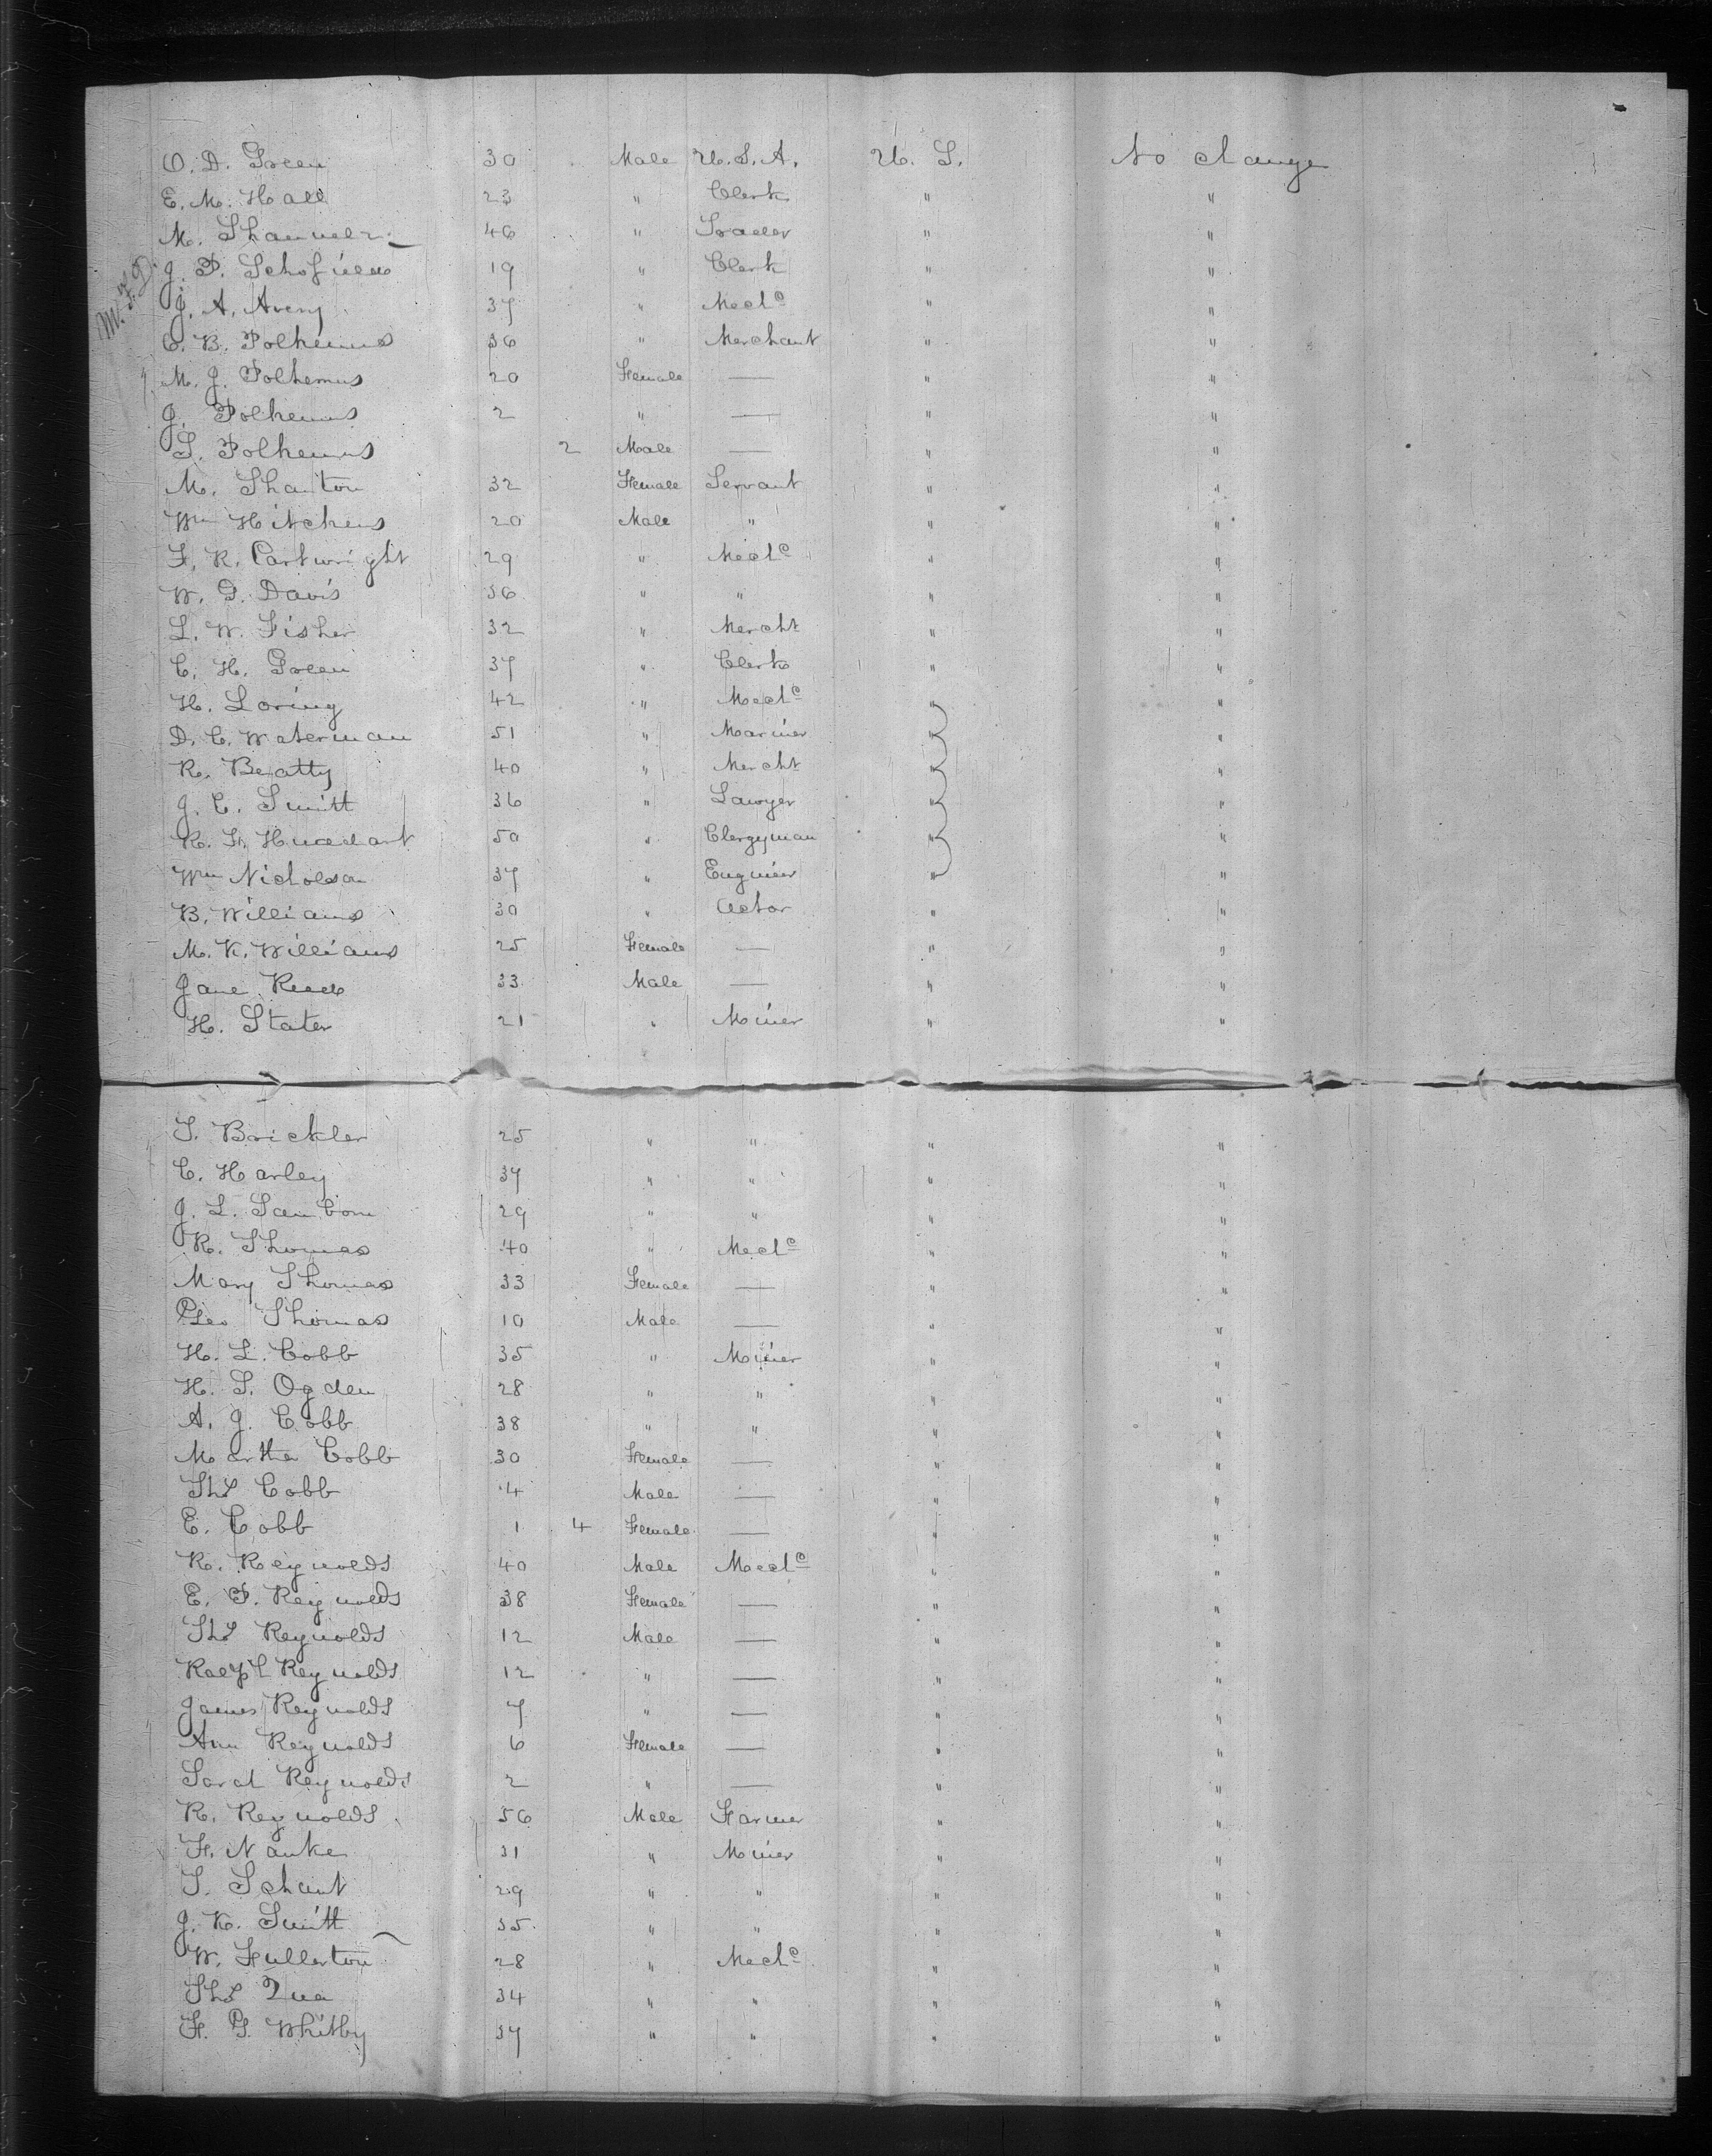 O. D. Green 30 Male U. S. A. U. S. No change
E. M. Hall 23 " Clerk " "
M. 46 " Trader " "
J. P. Schofield 19 " Clerk " "
J. A. Avery 37 " Mech<sup>c</sup> " "
C. B. Polhemus 36 " Merchant " "
M. J. Polhemus 20 Female — " "
J. Polhemus 2 " — " "
S. Polhemus 2 Male — " "
M. 32 Female Servant " "
W<sup>m</sup> Hitchens 20 Male " " "
F. R. Cartwright 29 " Mech<sup>c</sup> " "
W. G. Davis 36 " " " "
L. W. Fisher 32 " Mercht " "
C. H. Green 37 " Clerk " "
H. Loring 42 " Mech<sup>c</sup> " "
D. C. Waterman 51 " Mariner " "
R. Beatty 40 " Mercht " "
J. C. Smith 36 " Lawyer " "
R. F. 50 " Clergyman " "
W<sup>m</sup> Nicholson 37 " Engineer " "
B. Williams 30 " Actor " "
M. K. Williams 25 Female — " "
Jane Reed 33 Male — " "
H. Stater 21 " Miner " "
T. Brickler 25 " " " "
C. Harley 37 " " " "
J. L. Sanborn 29 " " " "
R. Thomas 40 " Mech<sup>c</sup> " "
Mary Thomas 33 Female — " "
Geo Thomas 10 Male — " "
H. L. Cobb 35 " Miner " "
H. S. Ogden 28 " " " "
A. J. Cobb 38 " " " "
Martha Cobb 30 Female — " "
Ths Cobb 4 Male — " "
E. Cobb 1 4 Female — " "
R. Reynolds 40 Male Mech<sup>c</sup> " "
E. P. Reynolds 38 Female — " "
Ths Reynolds 12 Male — " "
Ralph Reynolds 12 " — " "
James Reynolds 7 " — " "
Ann Reynolds 6 Female — " "
Sarah Reynolds 2 " — " "
R. Reynolds 56 Male Farmer " "
F. Nanke 31 " Miner " "
S. Schant 29 " " " "
J. K. Smith 35 " " " "
W. Fullerton 28 " Mech<sup>c</sup> " "
Ths Qua 34 " " " "
F. G. Whitby 37 " " " "